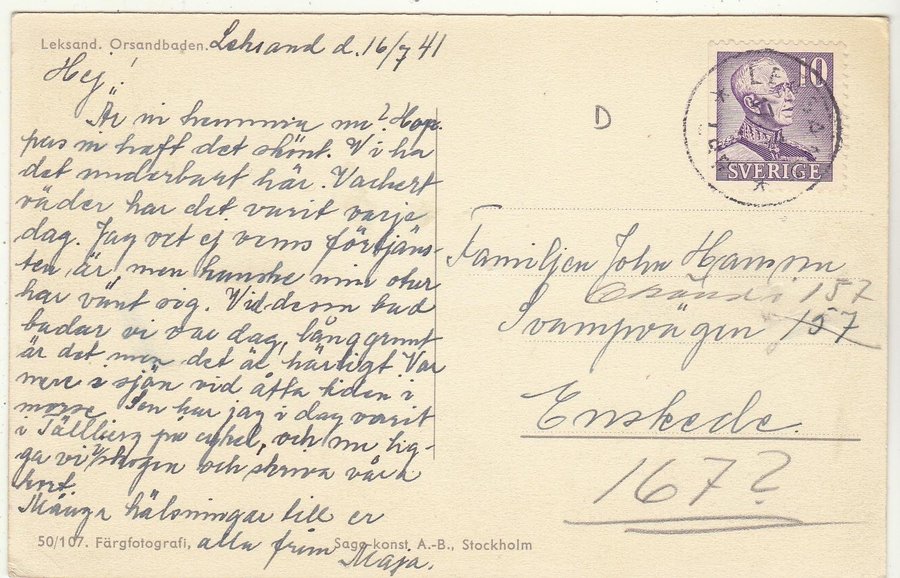 Leksand. Orsandbaden. Leksand d. 16/7 41
Hej!
Är ni hemma nu? Hop-
pas ni haft det skönt. Vi ha
det underbart här. Vackert
väder har det varit varje
dag. Jag vet ej vems förtjäns-
ten är, men kanske min otur
har vänt sig. Vid denna bad
badar vi var dag, långgrunt
är det men det är härligt. Var
nere i sjön vid åtta tiden i
morse. Sen har jag i dag varit
i Tällberg på cykel, och nu lig-
ga vi i skogen och skriva våra
kort.
Många hälsningar till er
alla från
Maja.
50/107. Färgfotografi, Sago-konst, A.-B., Stockholm
D
10
SVERIGE
Familjen John Hamrin
157
Svampvägen 157
Enskede.
167?